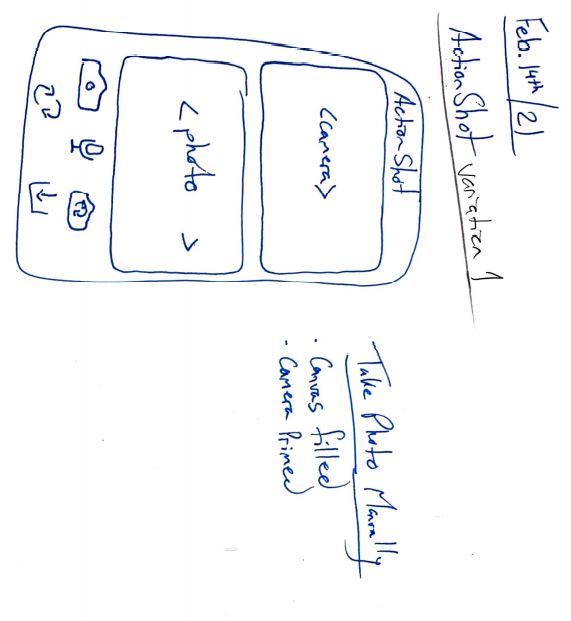 Feb. 14th/21
ActionShot variation 1
ActionShot
<camera>
<photo >
Take Photo Manually
· Canvas filled
- Camera Primed